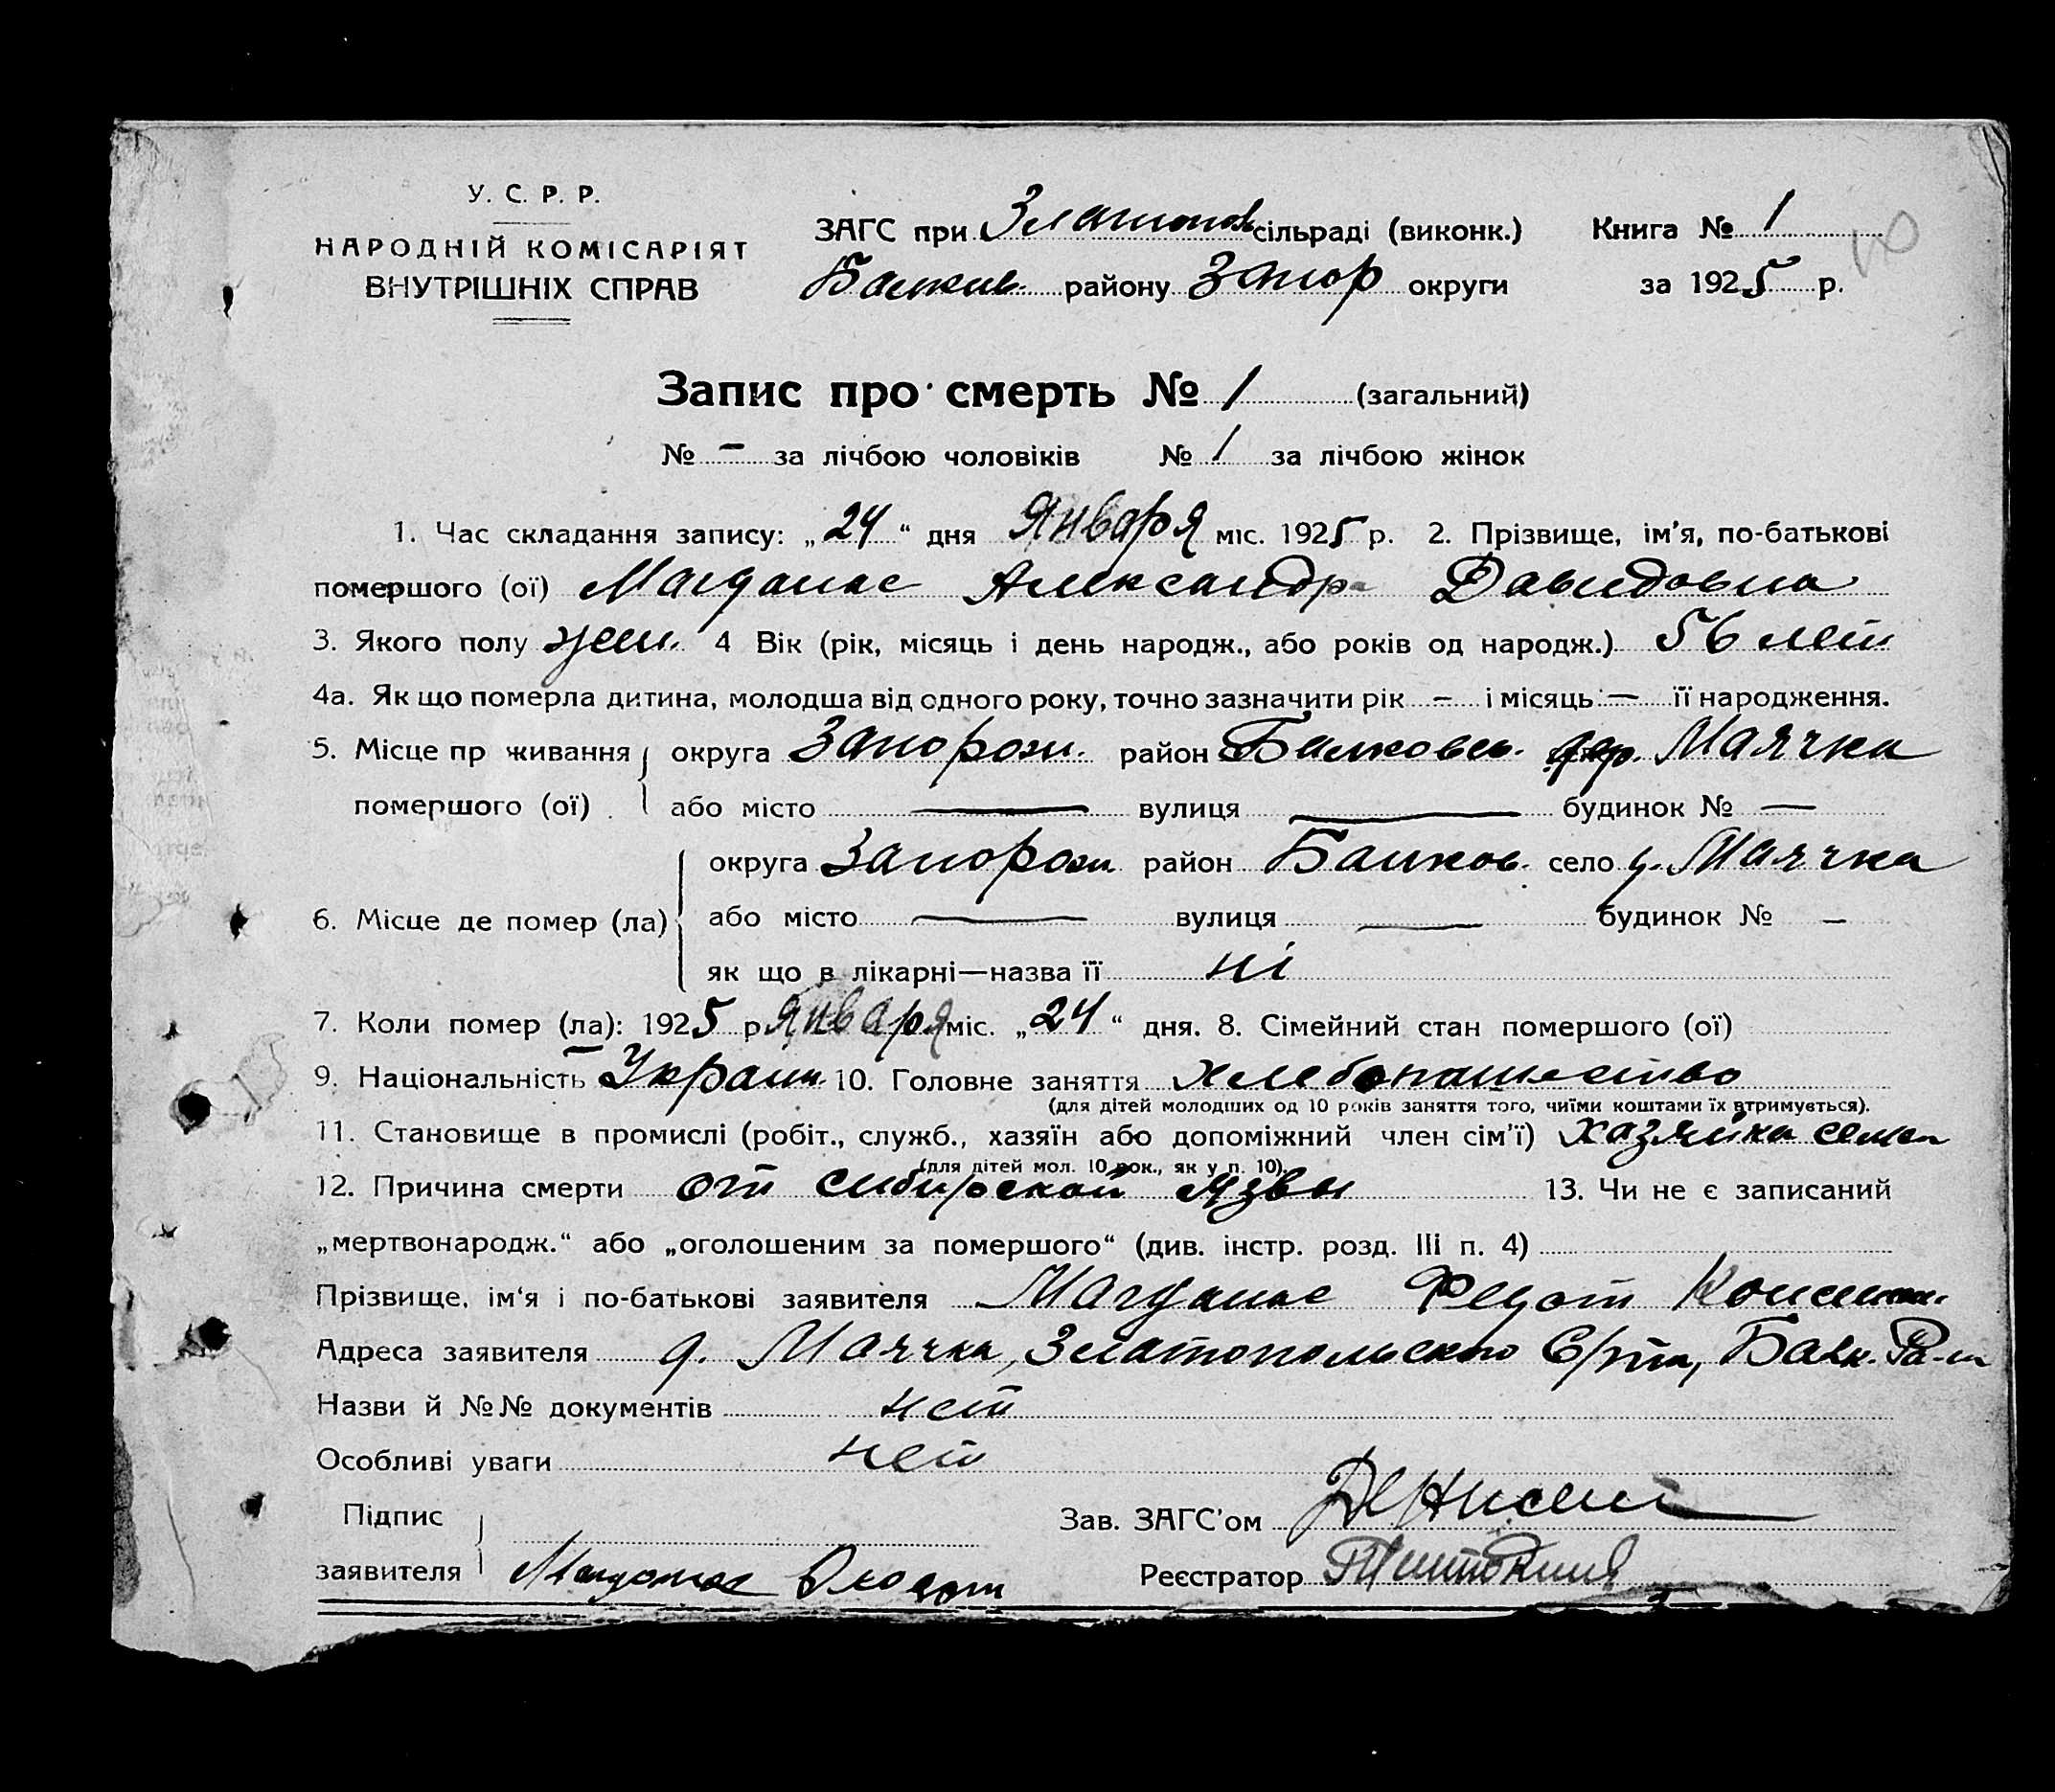 У. С. Р. Р.
НАРОДНІЙ КОМІСАРІЯТ
ВНУТРІШНІХ СПРАВ
ЗАГС при Златопольсільраді (виконк.) Книга № 1
району Запор округи за 1925 р.
Запис про смерть № 1 (загальний)
№ – за лічбою чоловіків № 1 за лічбою жінок
1. Час складання запису: „24“ дня Января міс. 1925 р. 2. Прізвище, ім'я, по-батькові
помершого (ої) Магдалас Александра Давидовна
3. Якого полу жен. 4 Вік (рік, місяць і день народж., або років од народж.) 56 лет
4а. Як що померла дитина, молодша від одного року, точно зазначити рік – і місяць — її народження.
5. Місце пр живання округа Запорож. район Балковск. Маячка
помершого (ої) . або місто — вулиця — будинок № —
округа Запорож район Балков. село д. Маячка
6. Місце де помер (ла) або місто — вулиця — будинок № –
як що в лікарні—назва її ні
7. Коли помер (ла): 1925 р Января міс. „24“ дня. 8. Сімейний стан помершого (ої)
9. Національність Украин. 10. Головне заняття хлебопашество
(для дітей молодших од 10 років заняття того, чиїми коштами їх втримується).
11. Становище в промислі (робіт., служб., хазяїн або допоміжний член сім'ї) хазяйка семьи
(для дітей мол. 10 рок., як у п. 10).
12. Причина смерти от сибирской язвы 13. Чи не є записаний
„мертвонародж.“ або „оголошеним за помершого“ (див. інстр. розд. III п. 4)
Прізвище, ім'я і по-батькові заявителя Магдалас Федот Констант.
Адреса заявителя д. Маячка, Златопольского С/та, Балк. Ра-на
Назви й №№ документів нет
Особливі уваги нет
Підпис
Зав. ЗАГС'ом
заявителя Магдалас Федот Реєстратор